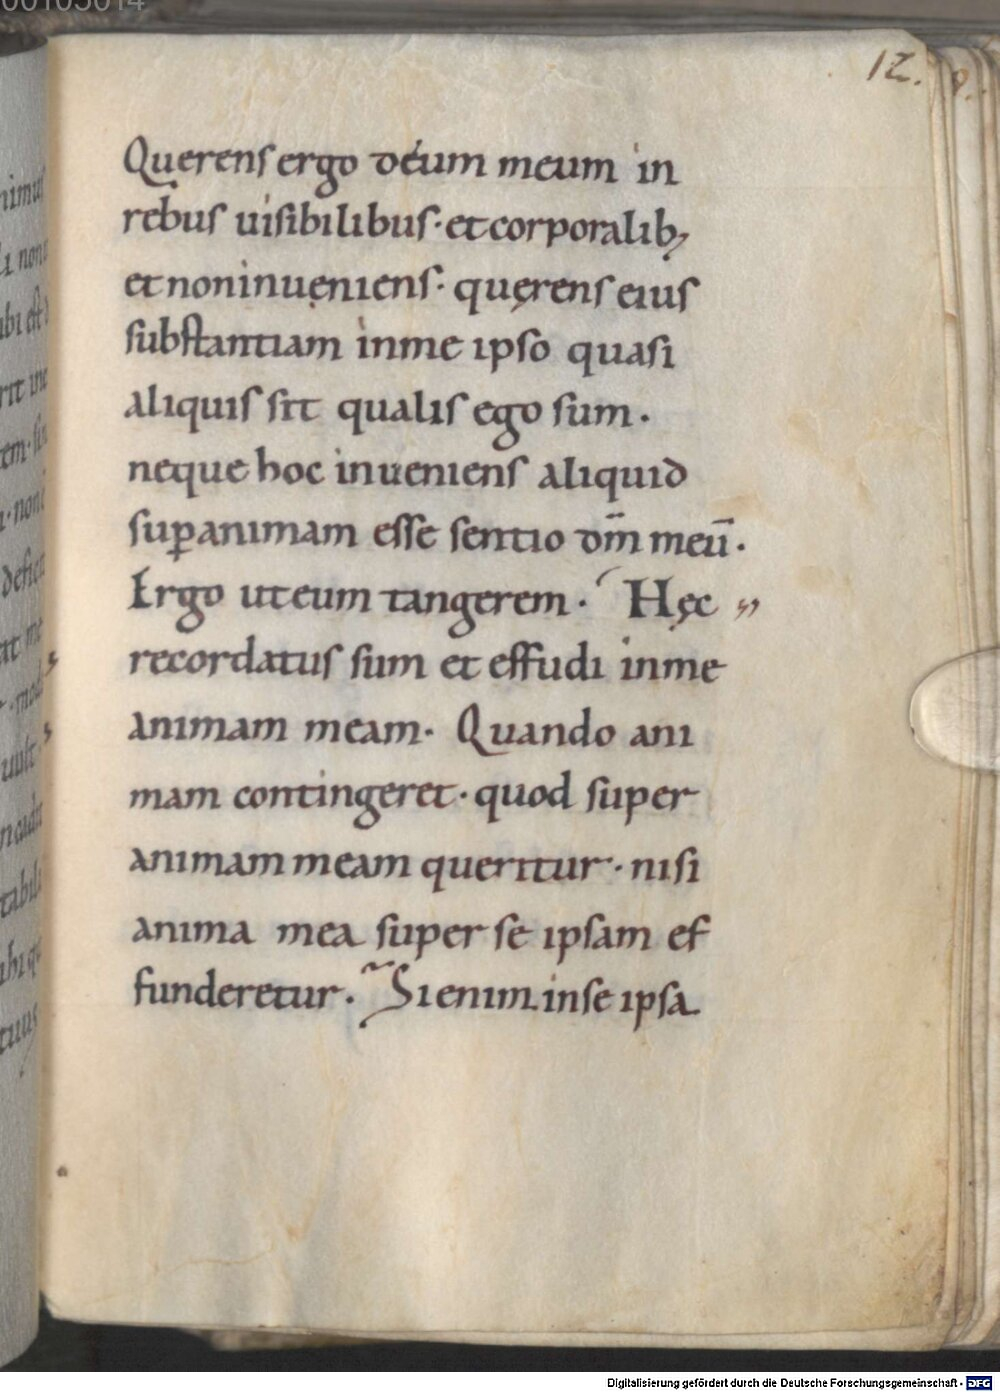 00105014
12.
Querens ergo deum meum in
rebus uisibilibus· et corporalib;
et non inueniens· quęrens eius
substantiam in me ipso quasi
aliquis sit qualis ego sum·
neque hoc inueniens aliquid
suꝑ animam esse sentio dm̅ meu̅·
Ergo ut eum tangerem· Hęc
recordatus sum et effudi in me
animam meam· Quando ani
mam contingeret· quod super
animam meam queritur· nisi
anima mea super se ipsam ef
funderetur· Si enim in se ipsa
Digitalisierung gefördert durch die Deutsche Forschungsgemeinschaft - DFG